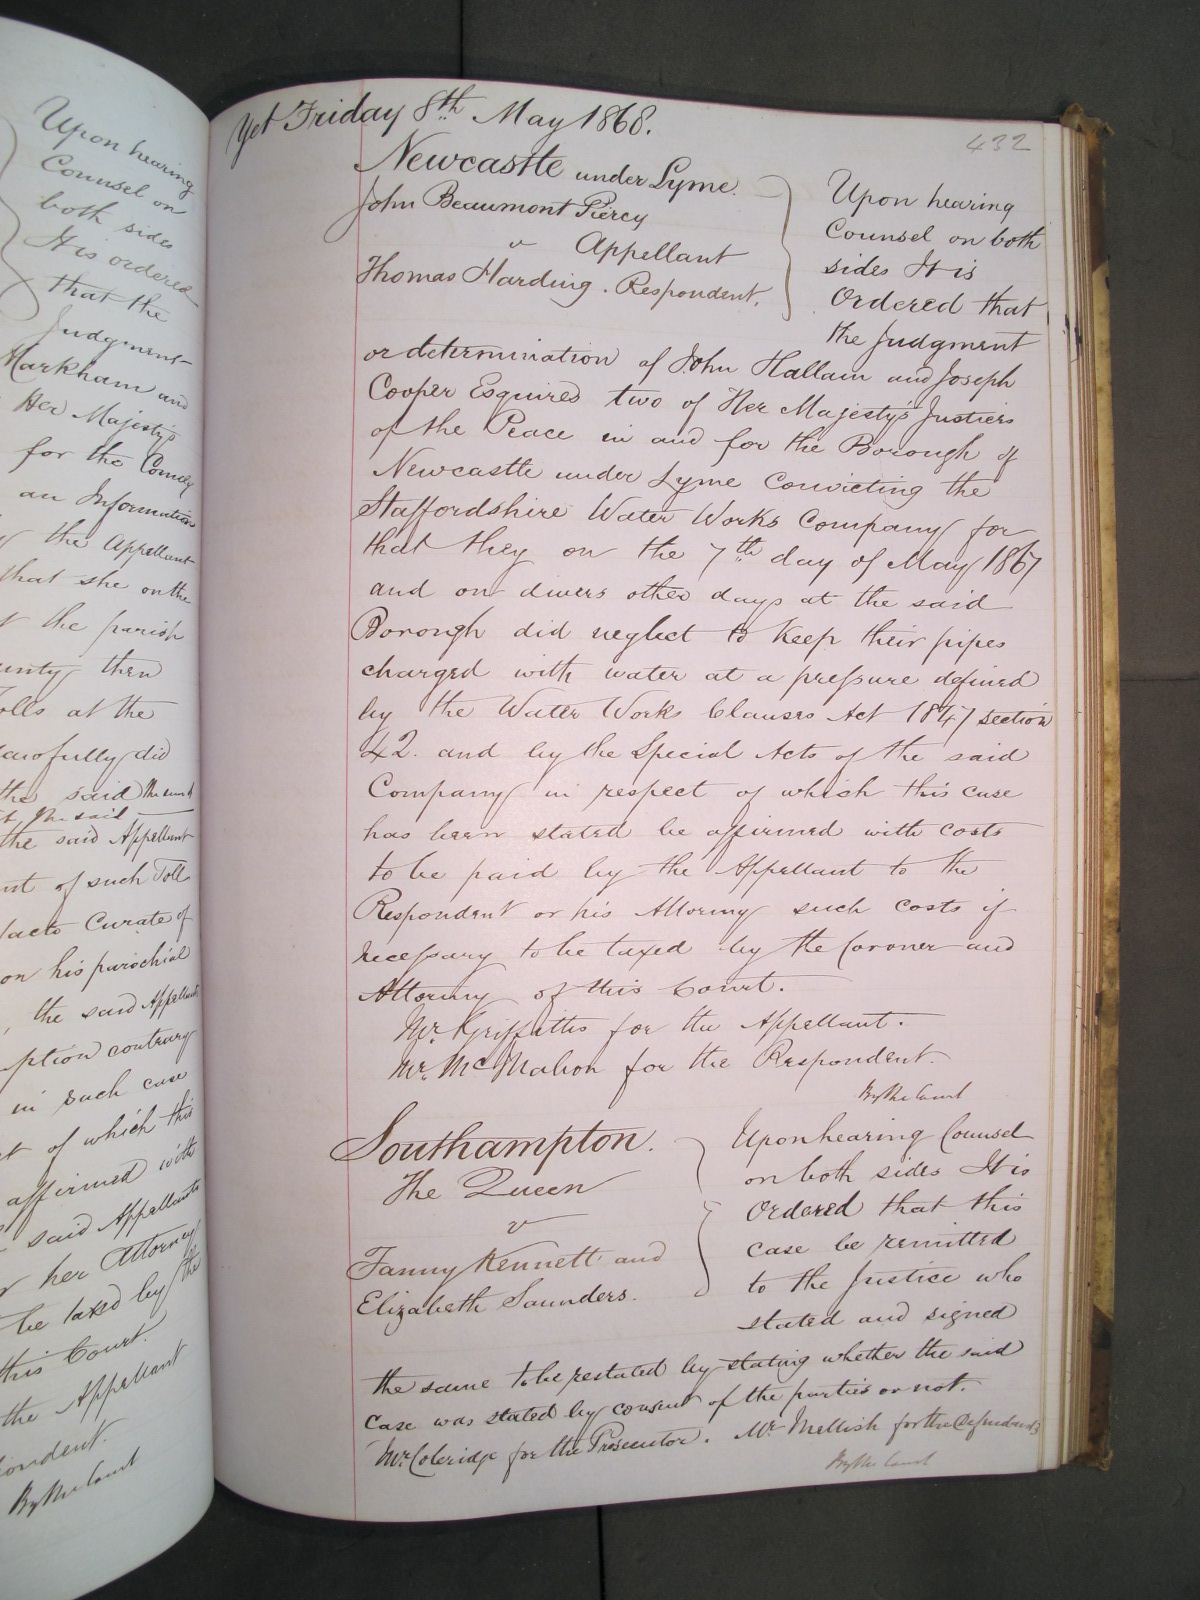 Upon hearing
Counsel on
both sides
It is ordered
that the
Judgment
Markham and
Her Majesty's
for the County
an Information
the Appellant
that she on the
the parish
then
olls at the
awfully did
the said
the said
the said Appellant
of such Toll
facto Curate of
on his parochial
, the said Appellant
ption contrary
in such case
of which this
affirmed with
said Appellants
her Attorney
be taxed by the
this Court.
the Appellant
ondent.
By the Court
Yet Friday 8th May 1868.
432
Newcastle under Lyme.
John Beaumont Piercy
Appellant
v
Thomas Harding. Respondent.
Upon hearing
Counsel on both
sides It is
Ordered that
the Judgment
or determination of John Hallam and Joseph
Cooper Esquires two of Her Majesty's Justices
of the Peace in and for the Borough of
Newcastle under Lyme Convicting the
Staffordshire Water Works Company for
that they on the 7th day of May 1867
and on divers other days at the said
Borough did neglect to keep their pipes
charged with water at a pressure defined
by the Water Works Clauses Act 1847 section
42. and by the Special Acts of the said
Company in respect of which this case
has been stated be affirmed with costs
to be paid by the Appellant to the
Respondent or his Attorney such costs if
necessary to be taxed by the Coroner and
Attorney of this Court.
Mr. Griffiths for the Appellant.
Mr. McMahon for the Respondent.
By the Court
Southampton.
The Queen
v
Fanny Kennett and
Elizabeth Saunders.
Upon hearing Counsel
on both sides It is
Ordered that this
case be remitted
to the Justice who
stated and signed
the same to be restated by stating whether the said
case was stated by consent of the parties or not.
Mr. Coleridge for the Prosecutor. Mr. Mellish for the Defendants
By the Court